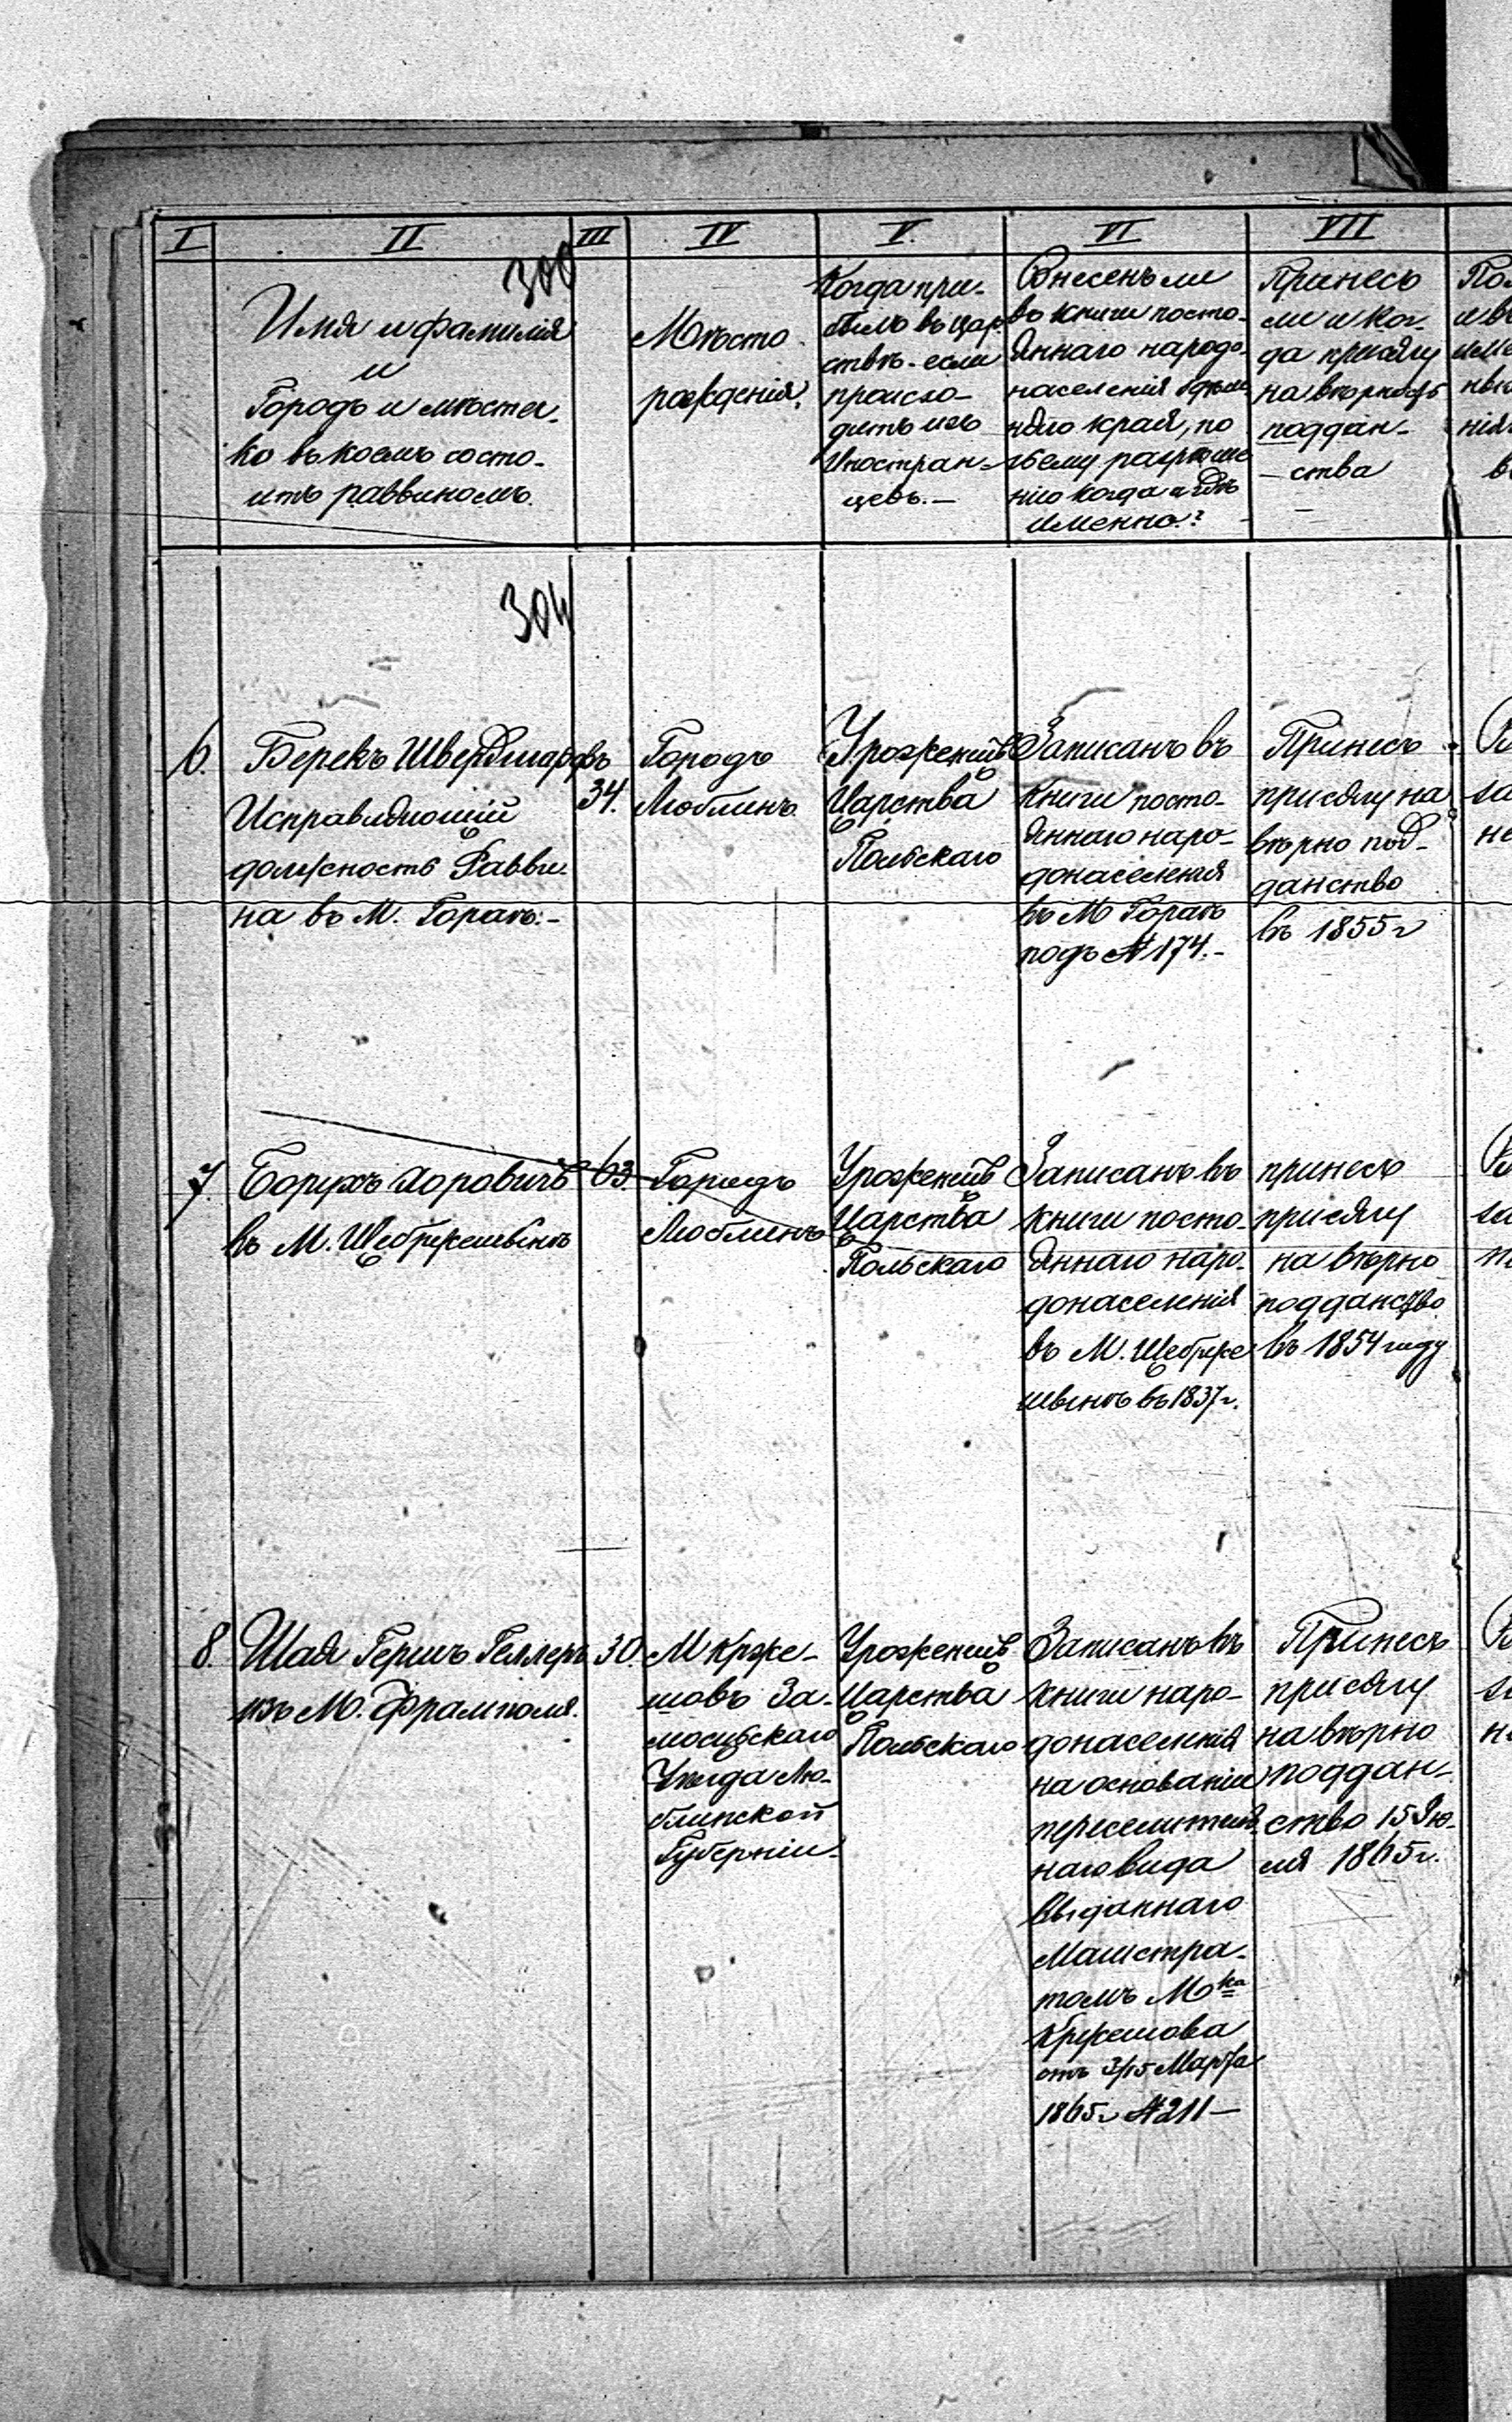 I
II
III
IV
V.
VI
VII
300
Имя и фамилія
и
Городъ и мѣстеч-
ко въ коемъ состо-
итъ раввиномъ.
Мѣсто
рожденія.
Когда при-
былъ въ Цар
ствѣ. если
происхо-
дитъ изъ
Иностран-
цевъ.—
Внесенъ ли
въ книги посто-
яннаго народо-
населенія
края, по
чьему разрѣше
нію когда и гдѣ
именно?
Принесъ
ли и ког-
да присягу
на вѣрность
поддан-
ства
304
6.
Берекъ Швердшарфъ
Исправляющій
должность Равви-
на въ М. Гораѣ.-
34.
Городъ
Люблинъ.
Уроженецъ
Царства
Польскаго
Записанъ въ
книги посто-
яннаго наро-
донаселенія
въ М Гораѣ
подъ № 174.-
Принесъ
присягу на
вѣрно под-
данство
въ 1855 г
7.
Борухъ Хоровичъ
въ М. Щебржешынѣ
63.
Городъ
Люблинъ
Уроженецъ
Царства
Польскаго
Записанъ въ
книги посто-
яннаго наро-
донаселенія
въ М. Щебрже
шынѣ въ 1837 г.
принесъ
присягу
на вѣрно
подданство
въ 1854 году
8.
Шая Гершъ Геллеръ
изъ М. Франполя.
30.
М Крже-
шовъ За-
мосцьскаго
Уѣзда Лю-
блинской
Губерніи.
Уроженецъ
Царства
Польскаго
Записанъ въ
книги наро-
донаселенія
на основаніи
переселитель
наго вида
выданнаго
Магистра-
томъ М<sup>ка</sup>
Кржешова
отъ 3/15 Марта
1865 г № 211 —
Принесъ
присягу
на вѣрно
поддан-
ство 15 Ію-
ля 1865 г.